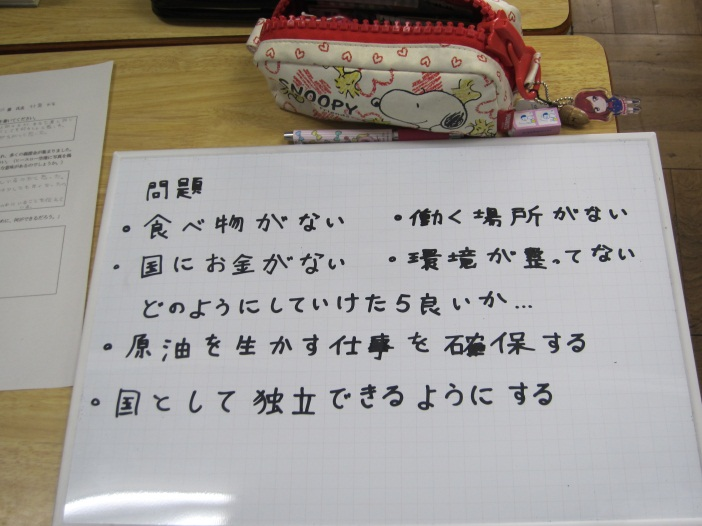 SNOOPY
問題
・食べ物がない ・働く場所がない
・国にお金がない ・環境が整ってない
どのようにしていけたら良いか…
・原油を生かす仕事を確保する
・国として独立できるようにする